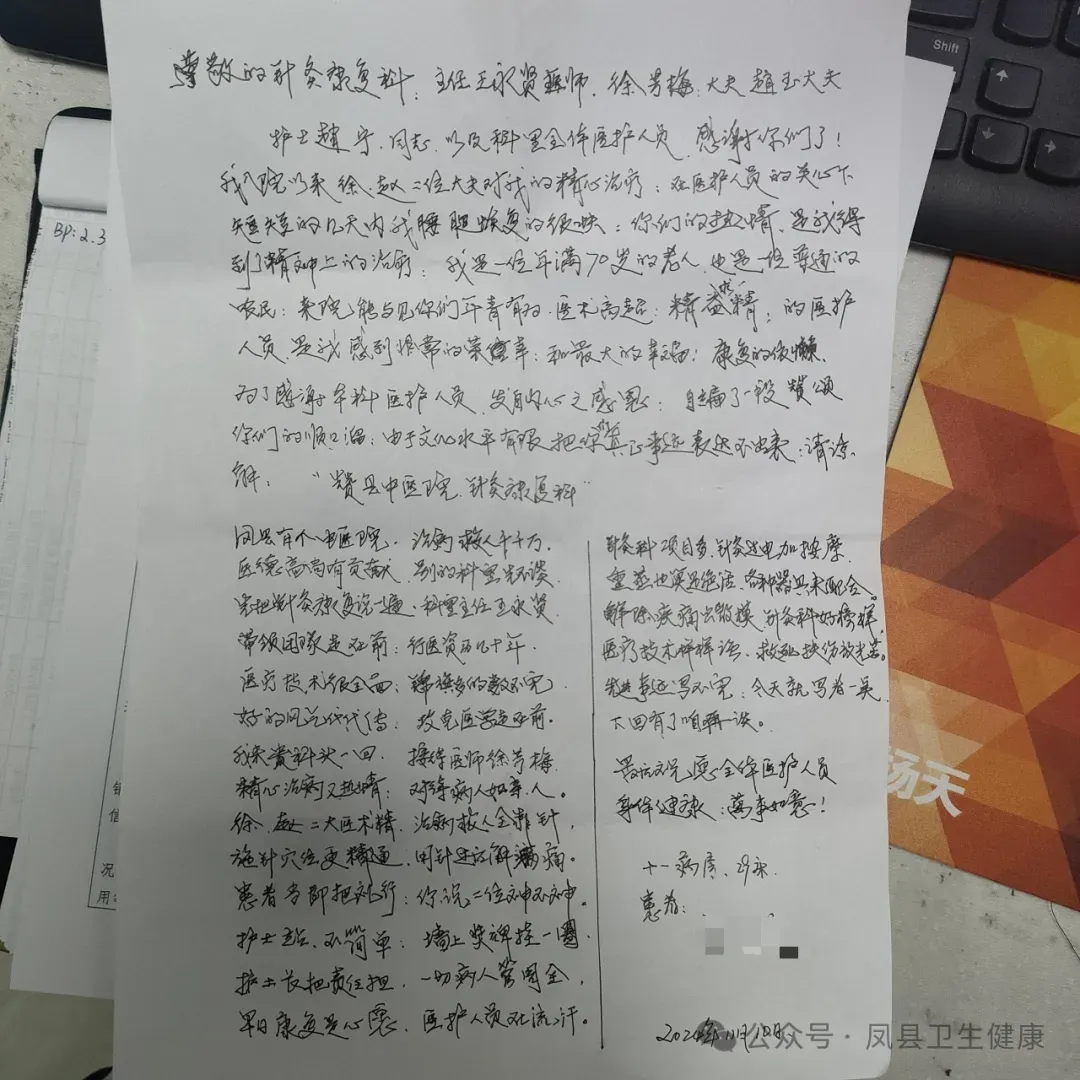 尊敬的针灸康复科：主任王永贤医师、徐芳梅、大夫赵玉大夫
护士赵宁、同志、以及科里全体医护人员、感谢你们了！
我入院以来徐、赵二位大夫对我的精心治疗：在医护人员的关心下
短短的几天内我腰腿恢复的很快：你们的热情、是我得
到了精神上的治疗：我是一位年满70岁的老人、也是一位普通的
农民：来院能与见你们年青有为、医术高超：精益求精：的医护
人员、是我感到非常的荣幸：和最大的幸福：康复的依懒、
为了感谢本科医护人员、发自内心之感恩：自编了一段赞颂
你们的顺口溜：由于文化水平有限把你们真正事迹表达不出来：请谅
解： “赞县中医院、针灸康复科”
凤县有个中医院、治病救人千千万、
医德高尚有贡献、别的科室先不谈、
先把针灸康复说一遍、科里主任王永贤、
带领团队走在前：行医资历几十年、
医疗技术很全面：锦旗多的数不完、
好的风气依代传：攻克医学走在前。
我来贵科头一回、接待医师徐芳梅、
精心治病又热情：对待病人如亲人。
徐、赵二大医术精、治病救人全靠针，
施针穴位更精通、用针还在解满痛。
患者当即把礼行：你说二位神不神。
护士站、不简单：墙上奖牌挂一圈、
护士长把责任担、一切病人管周全、
早日康复是心愿、医护人员在流汗。
针灸科项目多、针灸过电加按摩、
重蒸也算是绝活、各种器具来配合。
解除疾病出教模、针灸科好榜样，
医疗技术样样话、救死扶伤放光芒。
先进事迹写不完：今天就写者一点
下回有了咱再谈。
最后祝愿全体医护人员
身体健康：万事如意！
十一病房、29床
患者：
2024年11月10日
公众号·凤县卫生健康
Shift
BP:2.3
况
用
信
扬天